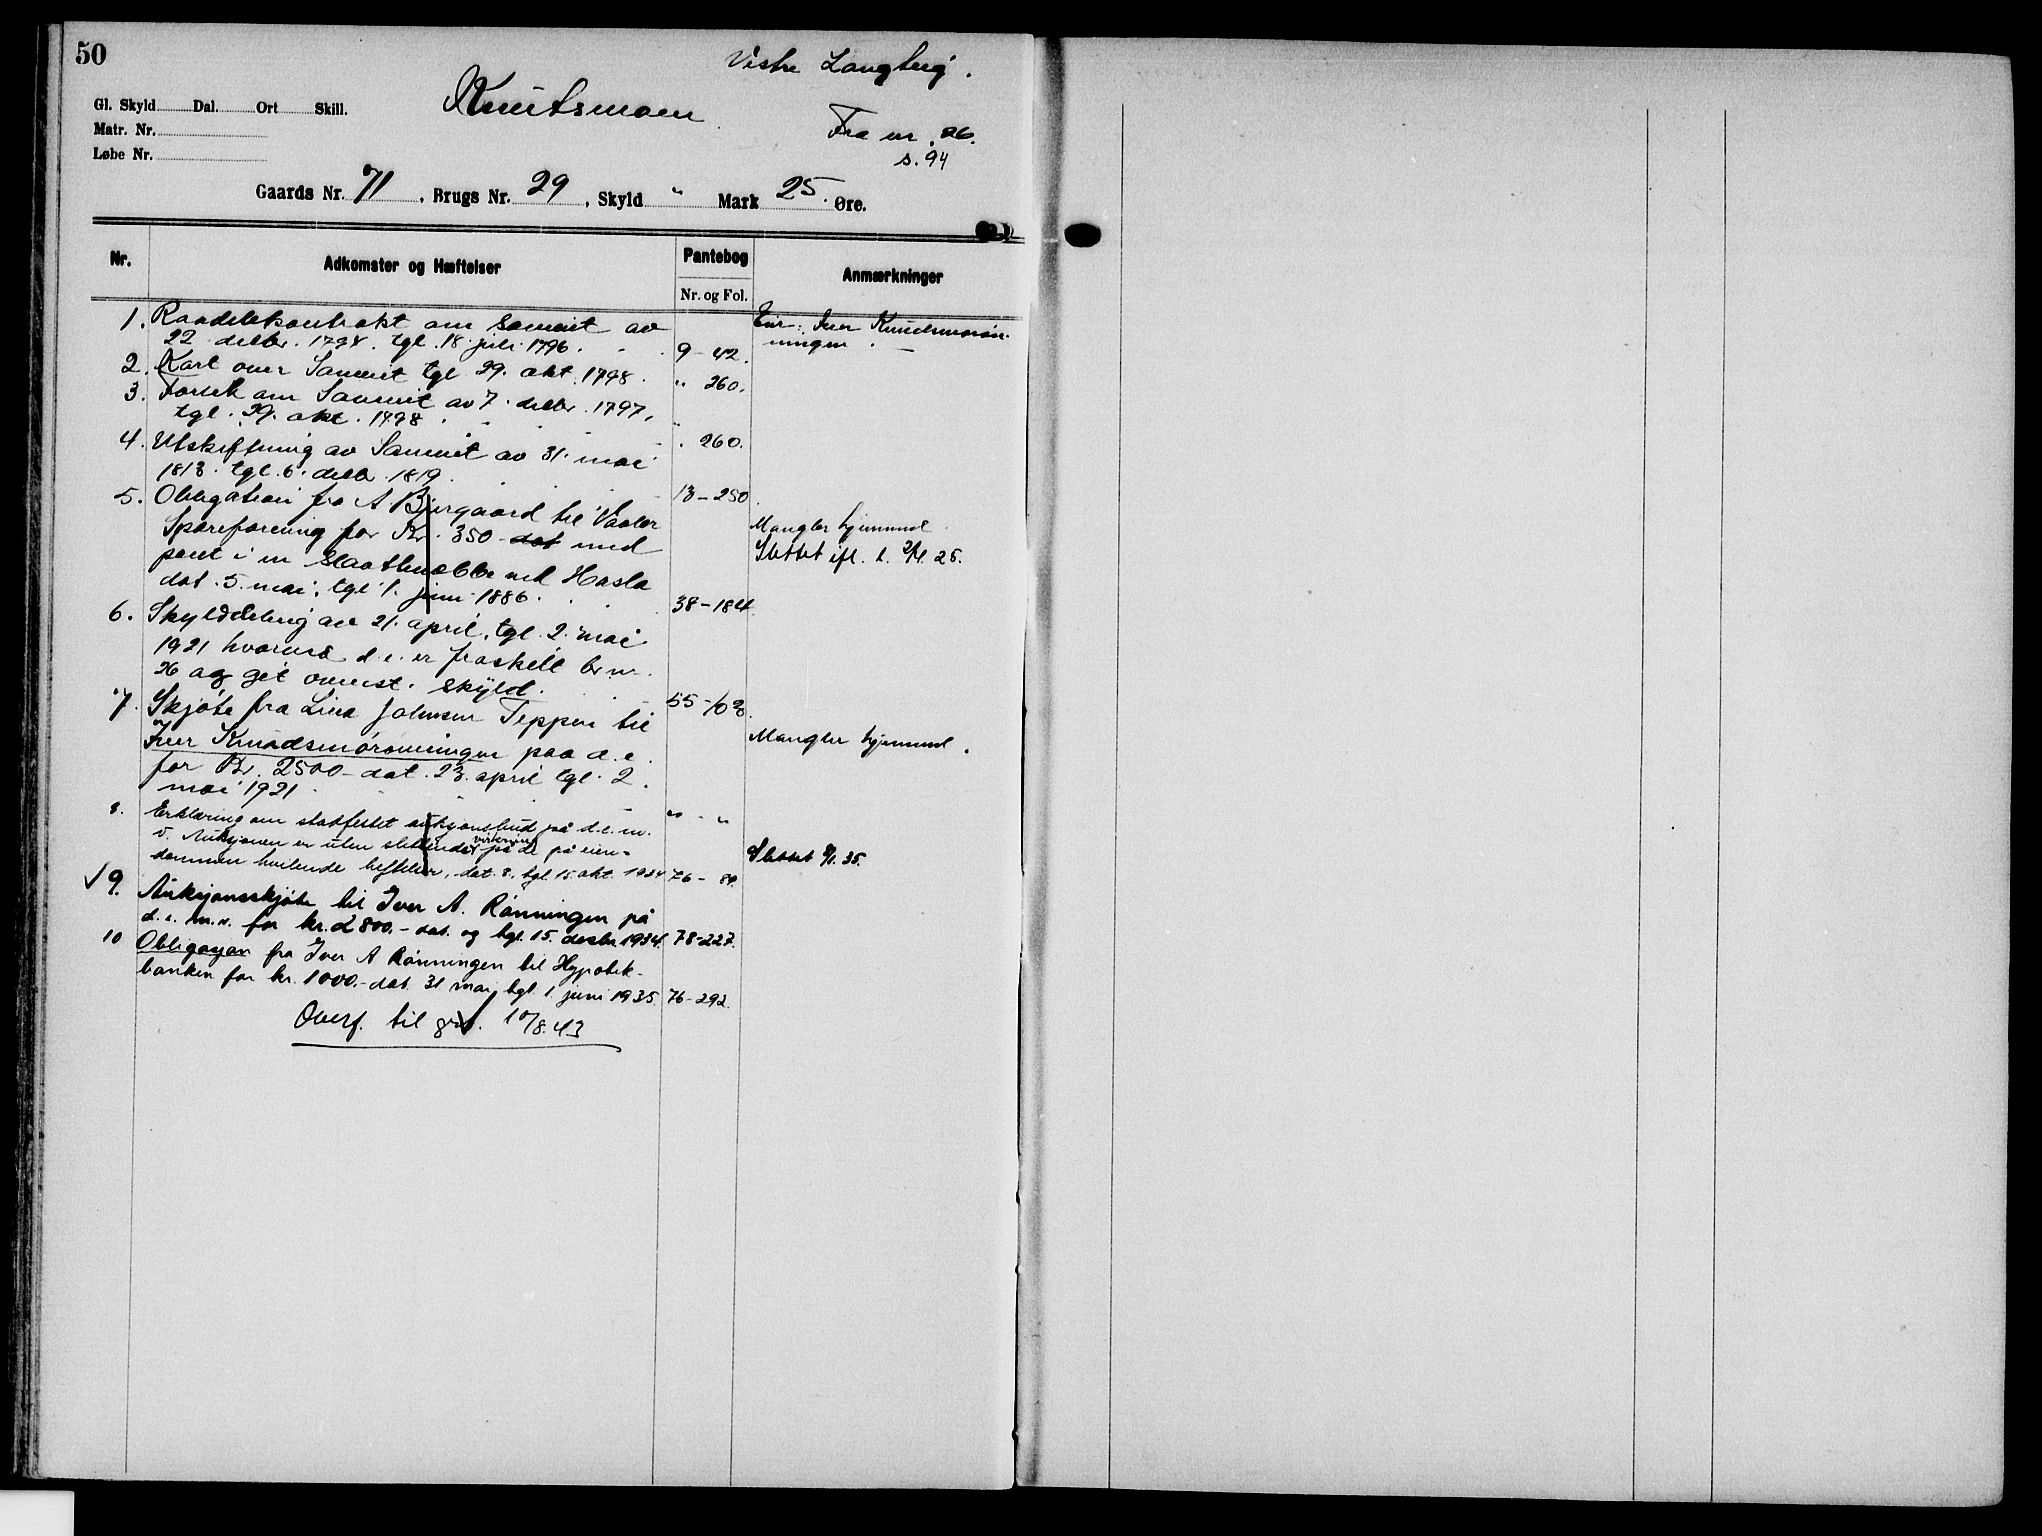 50
Vistre Langberg.
Gl. Skyld Dal. Ort Skill.
Knutsmoen
Matr. Nr.
Fra nr. 26.
Løbe Nr.
s. 94
Gaards Nr. 71, Brugs Nr. 29, Skyld " Mark 25 Øre.
Nr. Adkomster og Hæftelser Pantebog Anmærkninger
Nr. og Fol.
1. Raadelekontrakt om Sameiet av Eier: Iver Knudsmorøn-
22 decbr. 1794. tgl. 18 juli 1796. 9-42. ningen.
2. Kart over Sameiet tgl 29. okt. 1798. " 260.
3. Forlik om Sameiet av 7. decbr. 1797,
tgl. 29. okt. 1798 " . 260.
4. Utskiftning av Sameiet av 31. mai
1813. tgl. 6. decbr 1819. 13-250.
5. Obligation fra A Bjergaard til Vaaler Mangler hjemmel
Spareforening for Kr. 350- dat med Slettet ifl. t. 2/4 25.
pant i en Slaattenæbbe ved Hasla
dat. 5. mai, tgl 1. juni 1886. 38-184.
6. Skylddeling av 21. april, tgl. 2. mai
1921 hvorved d.e. er fraskilt br.nr.
26 og git ovenst. skyld. 55-102.
7. Skjøte fra Lina Johnsen Teppen til Mangler hjemmel.
Iver Knudsmorønningen paa d.e.
for Kr. 2500- dat. 23. april tgl. 2.
mai 1921. " - "
8. Erklæring om stadfestet auksjonsbud på d.e. m.
v. Auksjonen er uten slettende virkning på de på eien- Slettet 8/1. 35.
dommen hvilende heftelser, dat. 8, tgl. 15 okt. 1934 76-89.
√ 9. Auksjonsskjøte til Iver A. Rønningen på
d.e. m.v. for kr. 2800.- dat. og tgl. 15. desbr. 1934. 78-227.
10 Obligasjon fra Iver A Rønningen til Hypotek-
banken for kr. 1000.- dat. 31 mai, tgl. 1 juni 1935. 76-292.
Overf. til grb. 10/8.43